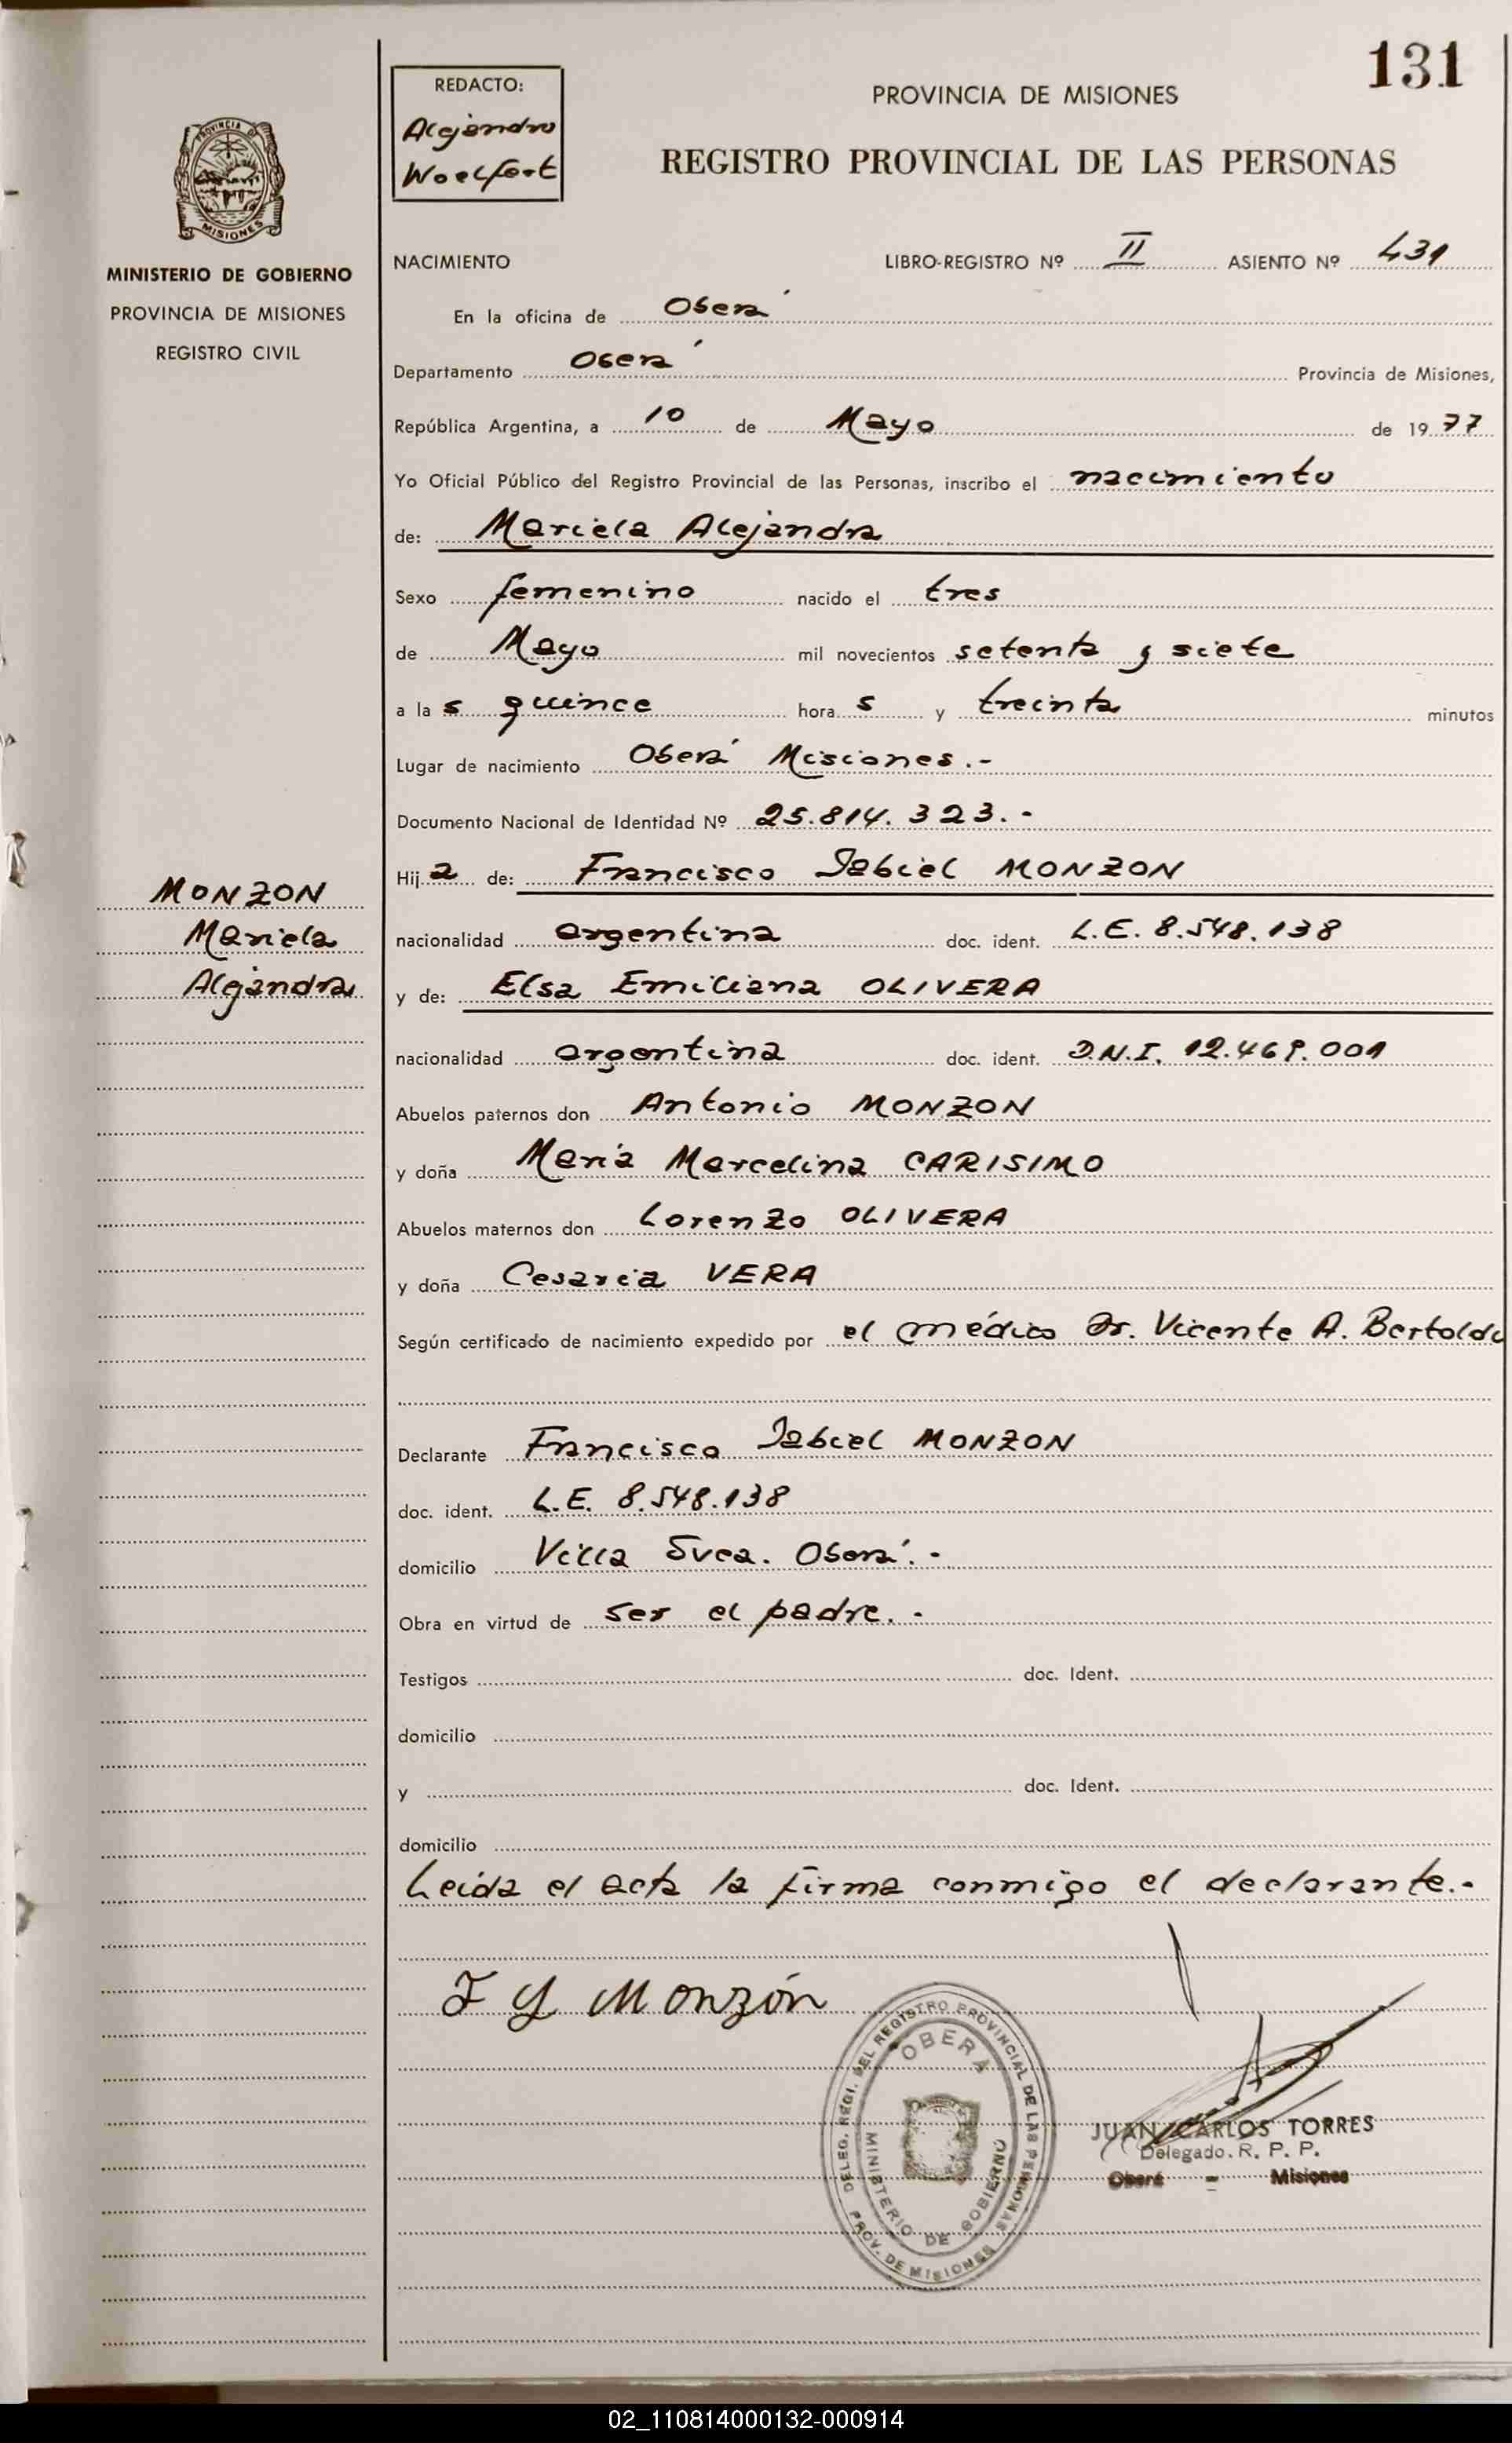 131
REDACTO:
Alejandro
Woelfert
PROVINCIA DE MISIONES
REGISTRO PROVINCIAL DE LAS PERSONAS
PROVINCIA DE
MISIONES
MINISTERIO DE GOBIERNO
PROVINCIA DE MISIONES
REGISTRO CIVIL
NACIMIENTO LIBRO-REGISTRO Nº II ASIENTO Nº 431
En la oficina de Oberá
Departamento Oberá Provincia de Misiones,
República Argentina, a 10 de Mayo de 1977
Yo Oficial Público del Registro Provincial de las Personas, inscribo el nacimiento
de: Mariela Alejandra
Sexo femenino nacido el tres
de Mayo mil novecientos setenta y siete
a las quince horas y treinta minutos
Lugar de nacimiento Oberá Misiones.-
Documento Nacional de Identidad Nº 25.814.323.-
Hija de: Francisco Isbiel MONZON
MONZON
Mariela
Alejandra
nacionalidad argentina doc. ident. L.E. 8.548.138
y de: Elsa Emiliana OLIVERA
nacionalidad argentina doc. ident. D.N.I. 12.469.001
Abuelos paternos don Antonio MONZON
y doña María Marcelina CARISIMO
Abuelos maternos don Lorenzo OLIVERA
y doña Cesaria VERA
Según certificado de nacimiento expedido por el médico Dr. Vicente A. Bertoldo
Declarante Francisco Isbiel MONZON
doc. ident. L.E. 8.548.138
domicilio Villa Svea. Oberá.-
Obra en virtud de ser el padre.-
Testigos doc. Ident.
domicilio
y doc. Ident.
domicilio
Leida el acta la firma conmigo el declarante.-
F Y Monzón
DELEG. REGI. DEL REGISTRO PROVINCIAL DE LAS PERSONAS
OBERÁ
MINISTERIO DE GOBIERNO
PROV. DE MISIONES
JUAN CARLOS TORRES
Delegado. R. P. P.
Oberá - Misiones
02_110814000132-000914